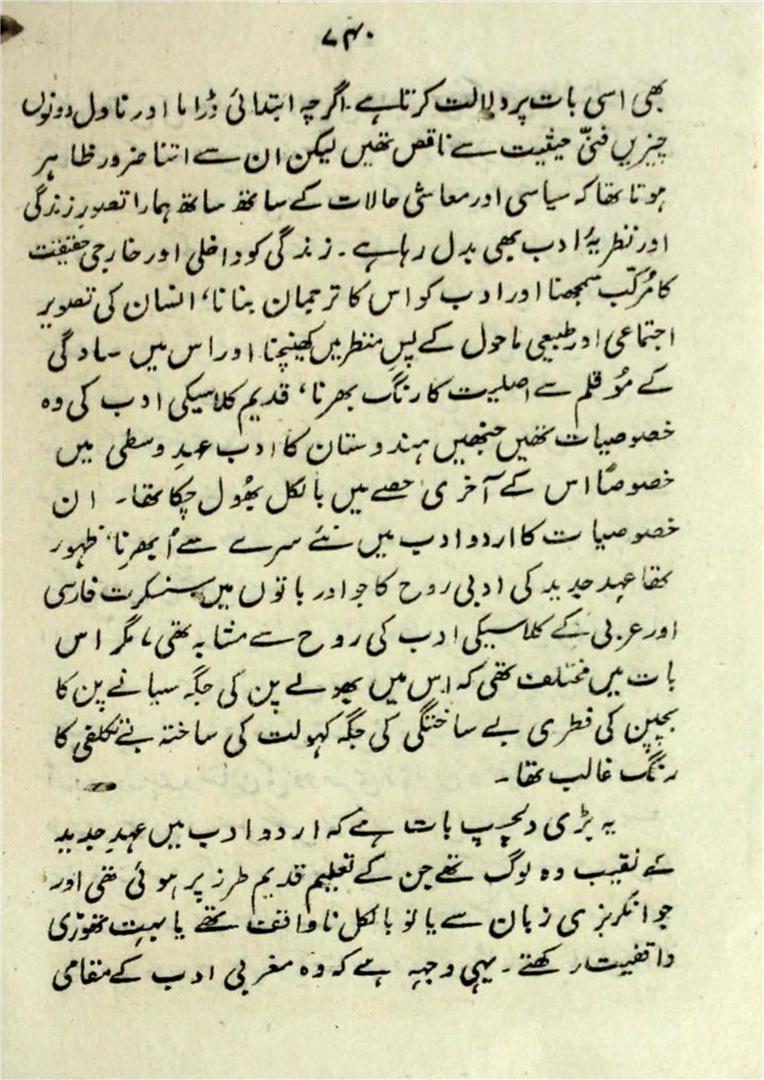 ۷۴۰
بھی اسی بات پر دلالت کرتا ہے۔ اگرچہ ابتدائی ڈراما اور ناول دونوں
چیزیں فنّی حیثیت سے ناقص تھیں لیکن ان سے اتنا ضرور ظاہر
ہوتا تھا کہ سیاسی اور معاشی حالات کے ساتھ ساتھ ہمارا تصورِ زندگی
اور نظریۂ ادب بھی بدل رہا ہے۔ زندگی کو داخلی اور خارجی حقیقت
کا مُرکّب سمجھنا اور ادب کو اس کا ترجمان بنانا، انسان کی تصویر
اجتماعی اور طبیعی ماحول کے پسِ منظر میں کھینچنا اور اس میں سادگی
کے مُوقلم سے اصلیت کا رنگ بھرنا، قدیم کلاسیکی ادب کی وہ
خصوصیات تھیں جنھیں ہندوستان کا ادب عہدِ وسطی میں
خصوصًا اس کے آخری حصے میں بالکل بھُول چکا تھا۔ ان
خصوصیات کا اردو ادب میں نئے سرے سے اُبھرنا، ظہور
تھا عہدِ جدید کی ادبی روح کا جو اور باتوں میں سنسکرت فارسی
اور عربی کے کلاسیکی ادب کی روح سے مشابہ تھی، مگر اس
بات میں مختلف تھی کہ اس میں بھولے پن کی جگہ سیانے پن کا
بچپن کی فطری بے ساختگی کی جگہ کہولت کی ساختہ بے تکلفی کا
رنگ غالب تھا۔
یہ بڑی دلچسپ بات ہے کہ اردو ادب میں عہدِ جدید
کے نقیب وہ لوگ تھے جن کے تعلیم قدیم طرز پر ہوئی تھی اور
جو انگریزی زبان سے یا تو بالکل ناواقف تھے یا بہت تھوڑی
واقفیت رکھتے۔ یہی وجہہ ہے کہ وہ مغربی ادب کے مقامی